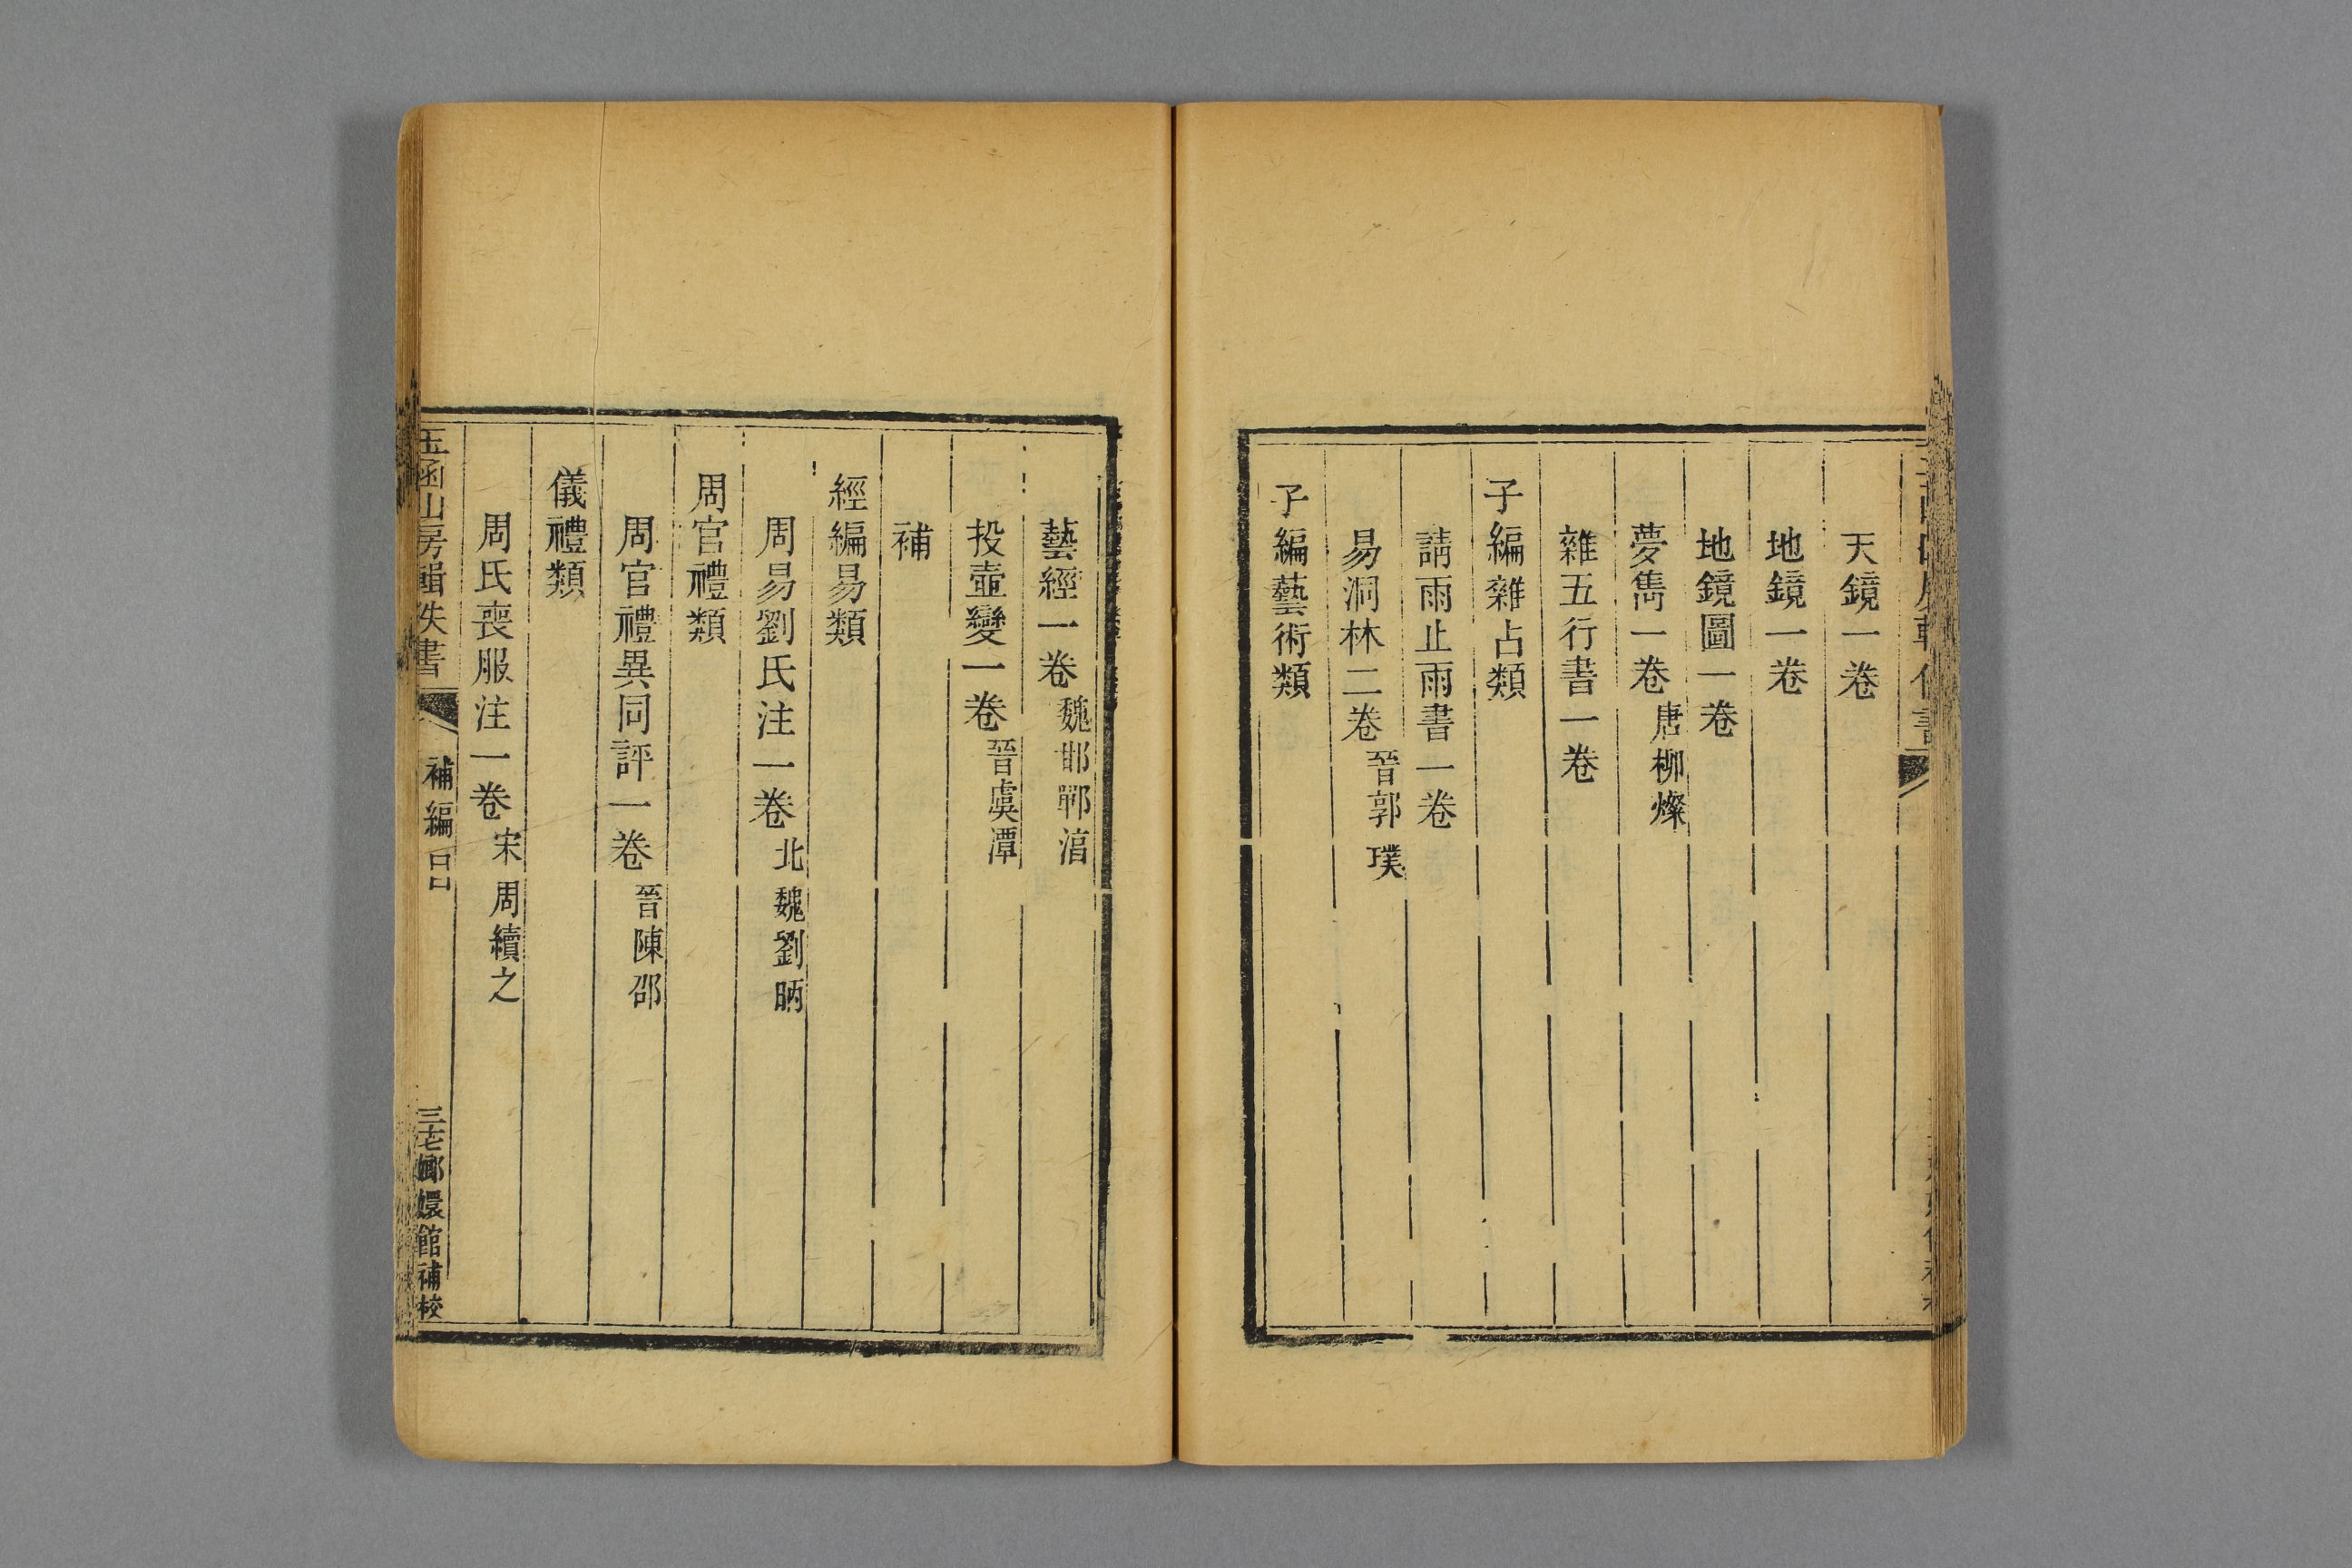 天鏡一卷
地鏡一卷
地鏡圖一卷
夢雋一卷 唐柳燦
雜五行書一卷
子編雜占類
請雨止雨書一卷
易洞林二卷 晉郭璞
子編藝術類
藝經一卷 魏邯鄲淳
投壷變一卷 晉虞潭
補
經編易類
周易劉氏注一卷 北魏劉昞
周官禮類
周官禮異同評一卷 晉陳邵
儀禮類
周氏喪服注一卷 宋周續之
玉函山房輯佚書 補編 嫏嬛館補校